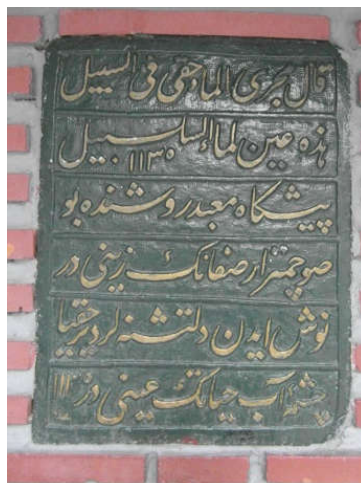 قال يجرى الما حقى فى السبيل
هذه عين لماء السلسبيل
١١٣٥
پیشکاه معبد روشنده بو
صو چمنزار صفانك زینی در
نوش ایدن دلتشنه لر دیر حقیا
چشمه آب حیاتك عینی در